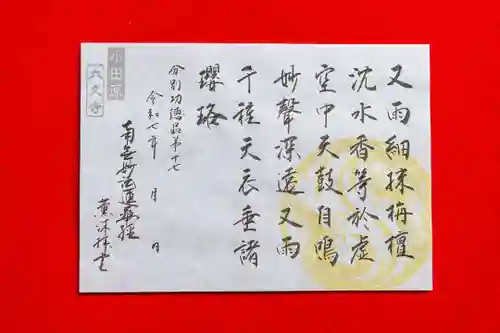 又雨細抹栴檀
沈水香等於虚
空中天鼓自鳴
妙聲深遠又雨
千種天衣垂諸
瓔珞
分別功徳品第十七
令和七年 月 日
南無妙法蓮華経
小田原
大久寺